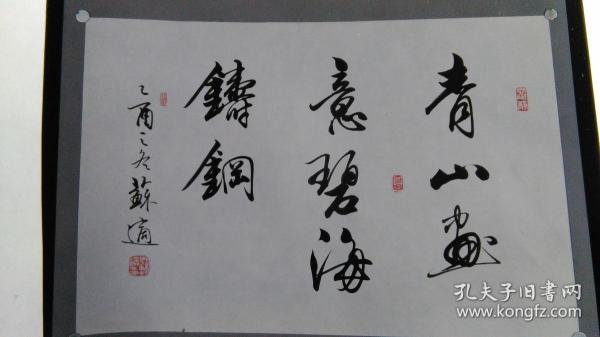 青山画
意碧海
鑄鋼
乙酉之冬蘇適
孔夫子旧书网
www.kongfz.com